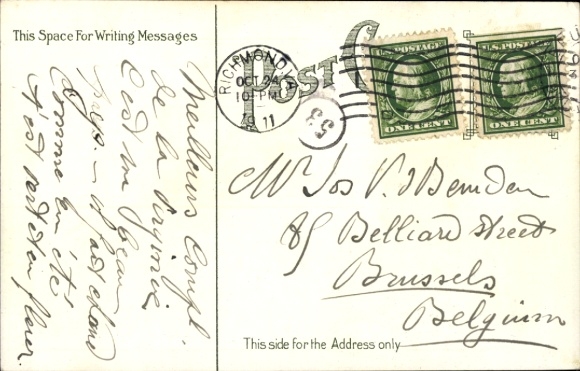 This Space For Writing Messages
Meilleurs Compl.
de la Virginie
C'est un beau
pays - il fait chaud
comme en été
tout est en fleur.
POST C
RICHMOND, VA.
OCT 24
10 PM
1911
53
U.S. POSTAGE
ONE CENT
U.S. POSTAGE
ONE CENT
Mr Jos V. d
85 Belliard street
Brussels
Belgium
This side for the Address only